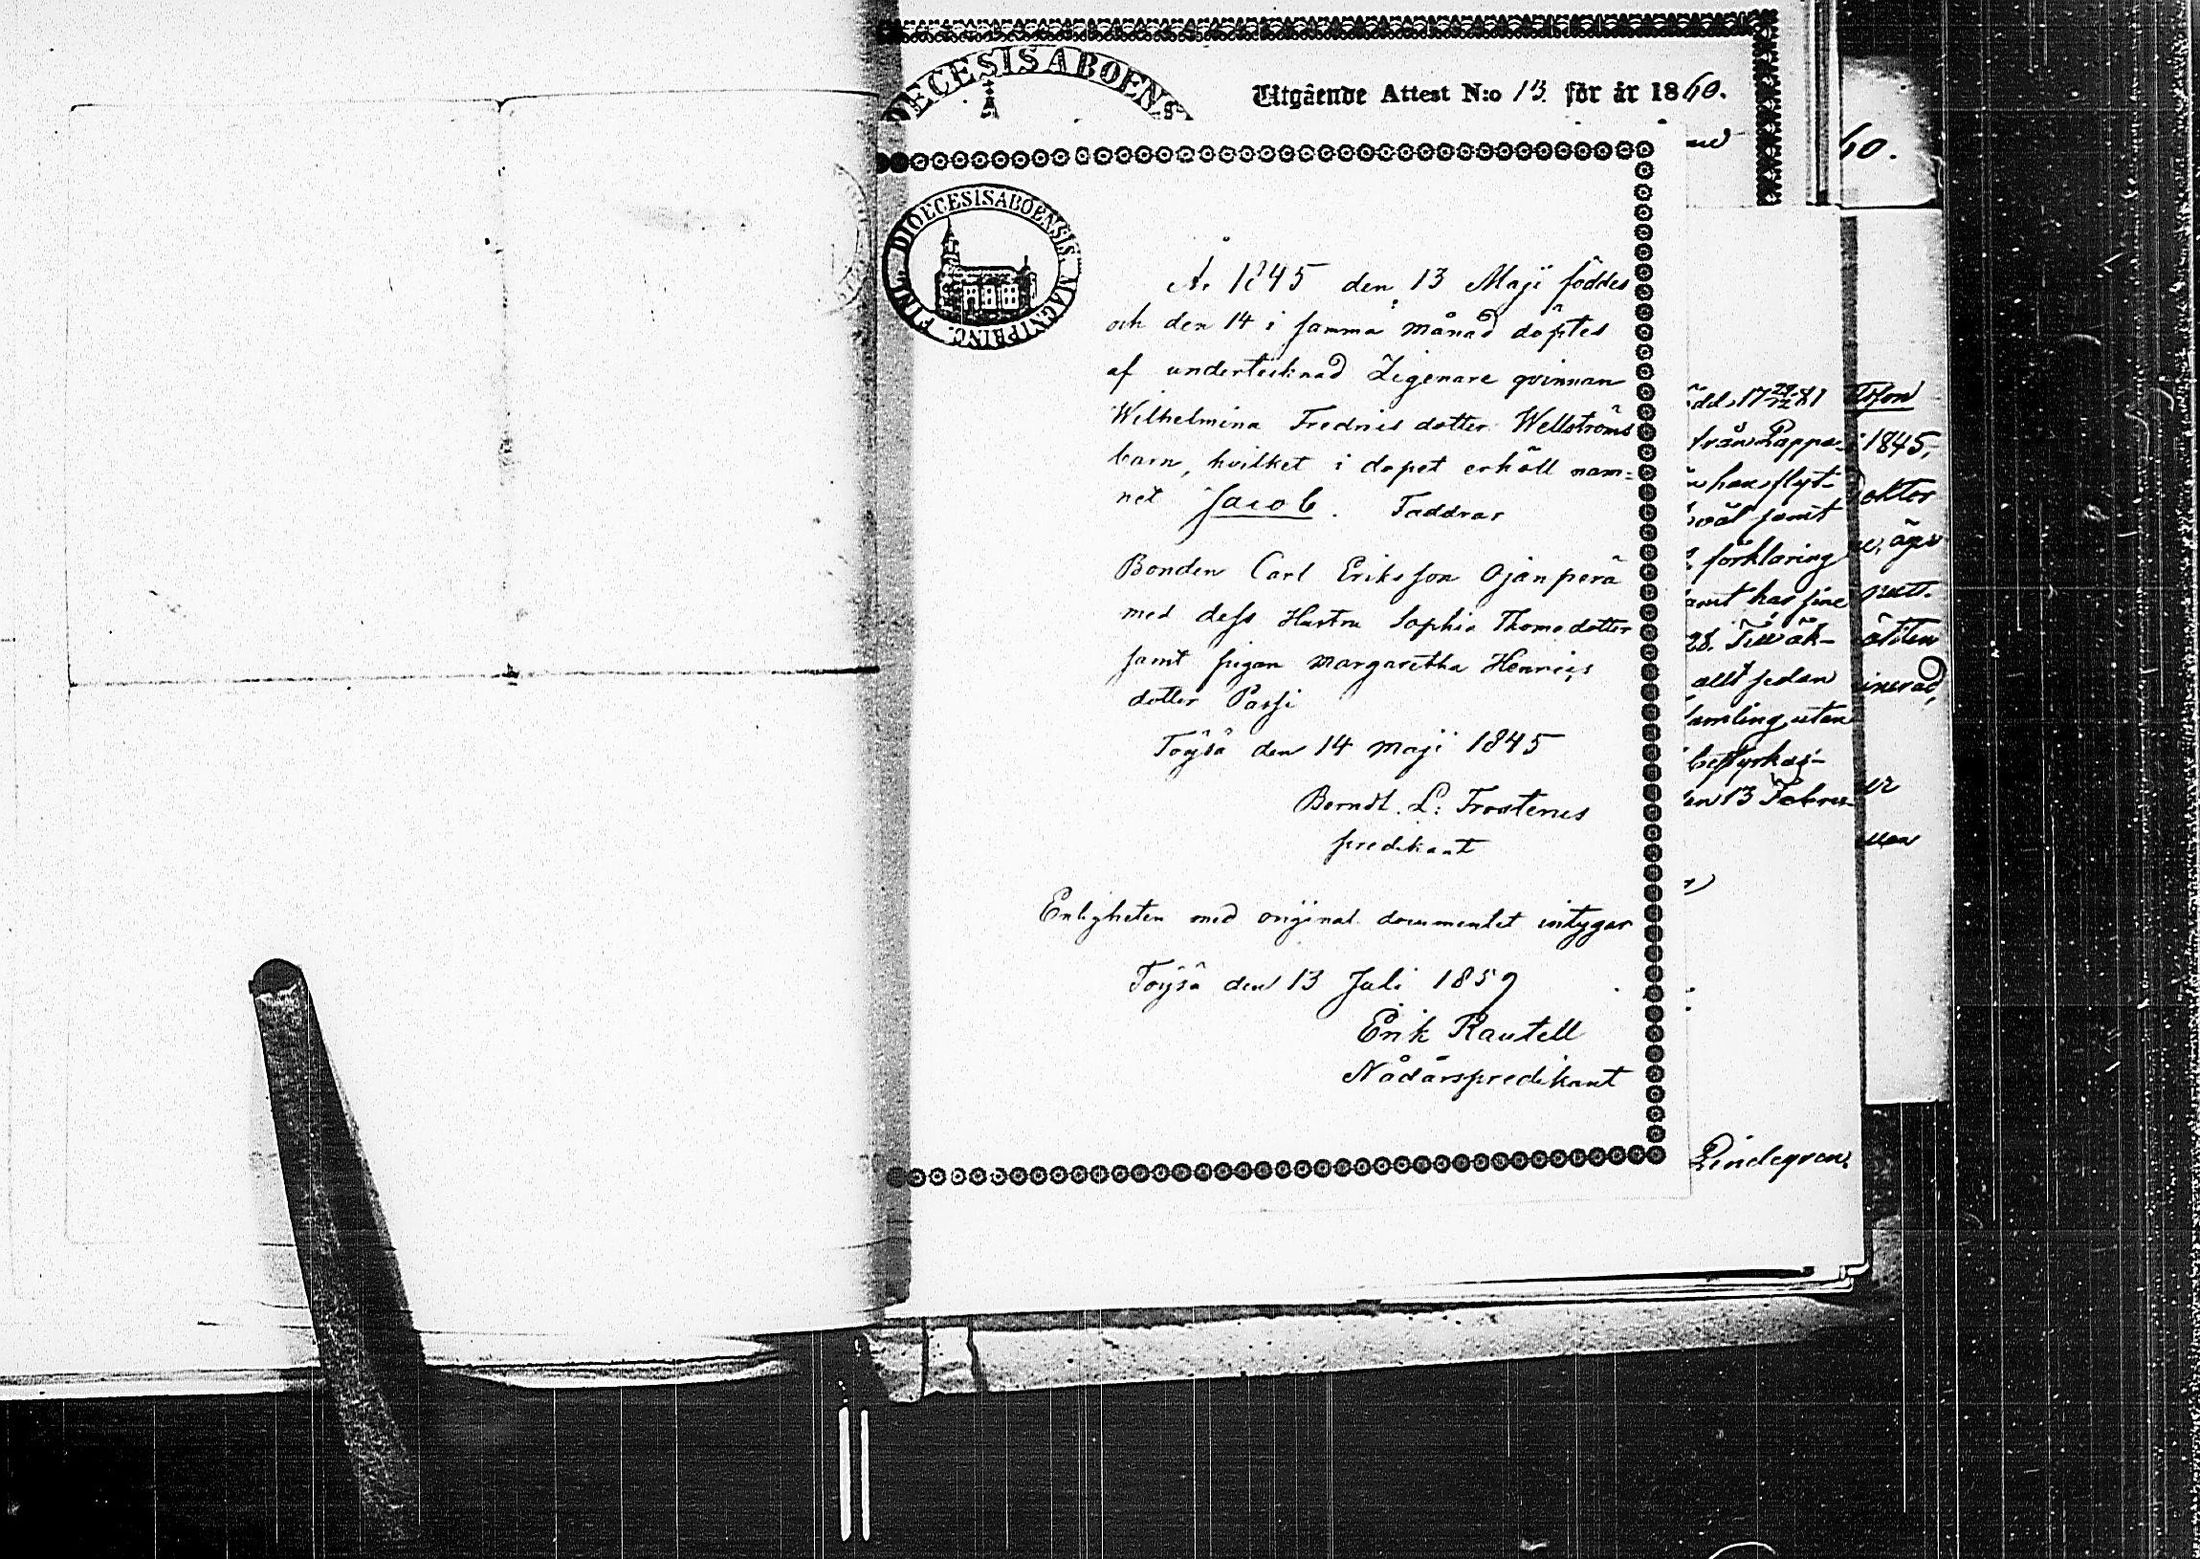 DIECESISABOENS
Utgående Attest N:o 13. för år 1860.
FINL. DIOECESISABOENSIS. MAGNIPRINC.
År 1845 den 13 Maji föddes
och den 14 i samma månad döptes
af undertecknad Zigenare qvinnan
Wilhelmina Fredricsdotter Wellströms
barn, hvilket i dopet erhöll nam=
net Jacob. Faddrar
Bonden Carl Eriksson Ojanperä
med dess Hustru Sophia Thomsdotter
samt pigan Margaretha Henrics
dotter Passi
Töysä den 14 Maji 1845
Berndt. L: Frosterus
predikant
Enligheten med original documentet intygar
Töysä den 13 Juli 1859
Erik Rautell
Nådårspredikant
60.
från Pappe-
1845,
hans flyt-
väl samt
förklaring
samt har sine
allt sedan
samling utan
bestyrkes-
13 Febru-
Lindegren.